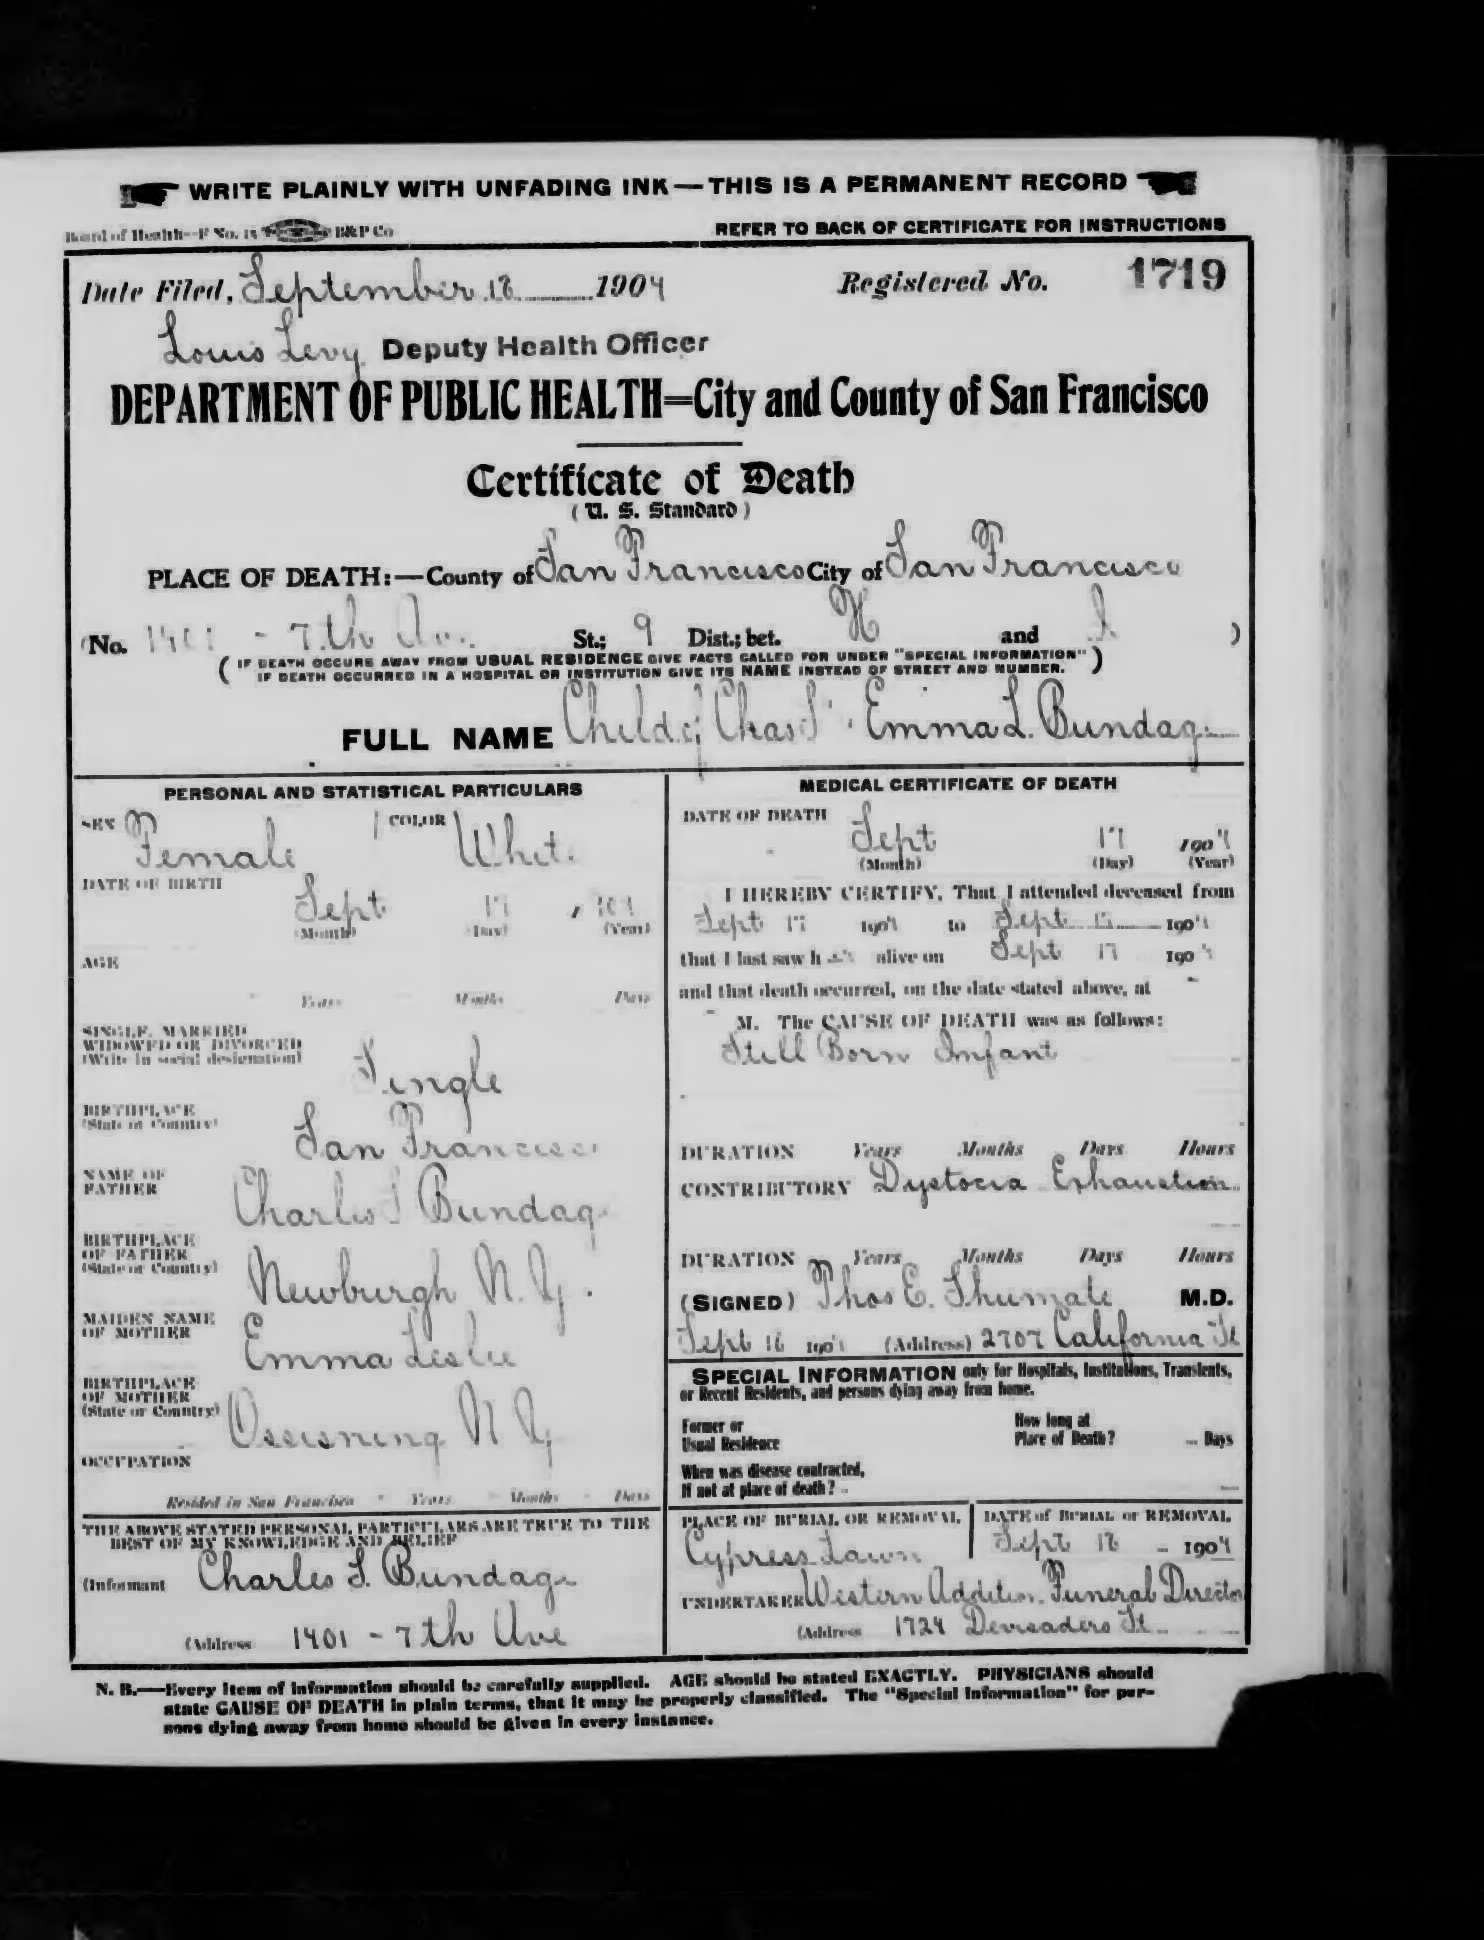 WRITE PLAINLY WITH UNFADING INK—THIS IS A PERMANENT RECORD
Board of Health—F No. 15 B&P Co REFER TO BACK OF CERTIFICATE FOR INSTRUCTIONS
Date Filed, September 18 1904 Registered No. 1719
Louis Levy Deputy Health Officer
DEPARTMENT OF PUBLIC HEALTH=City and County of San Francisco
Certificate of Death
(U. S. Standard)
PLACE OF DEATH:—County of San Francisco City of San Francisco
(No. 1401 - 7th Av. St.; 9 Dist.; bet. H and I )
(IF DEATH OCCURS AWAY FROM USUAL RESIDENCE GIVE FACTS CALLED FOR UNDER "SPECIAL INFORMATION"
IF DEATH OCCURRED IN A HOSPITAL OR INSTITUTION GIVE ITS NAME INSTEAD OF STREET AND NUMBER.)
FULL NAME Child of Chas S Emma L. Bundage
PERSONAL AND STATISTICAL PARTICULARS
SEX Female COLOR White
DATE OF BIRTH
Sept 17 , 1904
(Month) (Day) (Year)
AGE
Years Months Days
SINGLE, MARRIED
WIDOWED OR DIVORCED
(Write in social designation)
Single
BIRTHPLACE
(State or Country)
San Francisco
NAME OF
FATHER
Charles S Bundage
BIRTHPLACE
OF FATHER
(State or Country)
Newburgh N. Y.
MAIDEN NAME
OF MOTHER
Emma Leslie
BIRTHPLACE
OF MOTHER
(State or Country)
Ossisning N Y
OCCUPATION
Resided in San Francisco Years Months Days
THE ABOVE STATED PERSONAL PARTICULARS ARE TRUE TO THE
BEST OF MY KNOWLEDGE AND BELIEF
(Informant Charles S. Bundage
(Address 1401 - 7th Ave
MEDICAL CERTIFICATE OF DEATH
DATE OF DEATH
Sept 17 1904
(Month) (Day) (Year)
I HEREBY CERTIFY, That I attended deceased from
Sept 17 1904 to Sept 17 1904
that I last saw h alive on Sept 17 1904
and that death occurred, on the date stated above, at -
- M. The CAUSE OF DEATH was as follows:
Still Born Infant
DURATION Years Months Days Hours
CONTRIBUTORY Dystocia Exhaustion
DURATION Years Months Days Hours
(SIGNED) Thos E. Shumate M.D.
Sept 1904 (Address) 2707 California St
SPECIAL INFORMATION only for Hospitals, Institutions, Transients,
or Recent Residents, and persons dying away from home.
Former or
Usual Residence
How long at
Place of Death? Days
When was disease contracted,
If not at place of death?
PLACE OF BURIAL OR REMOVAL
Cypress Lawn
DATE of BURIAL or REMOVAL
Sept 18 - 1904
UNDERTAKER Western Addition Funeral Director
(Address 1724 Devisadero St
N. B.—Every item of information should be carefully supplied. AGE should be stated EXACTLY. PHYSICIANS should
state CAUSE OF DEATH in plain terms, that it may be properly classified. The "Special Information" for per-
sons dying away from home should be given in every instance.